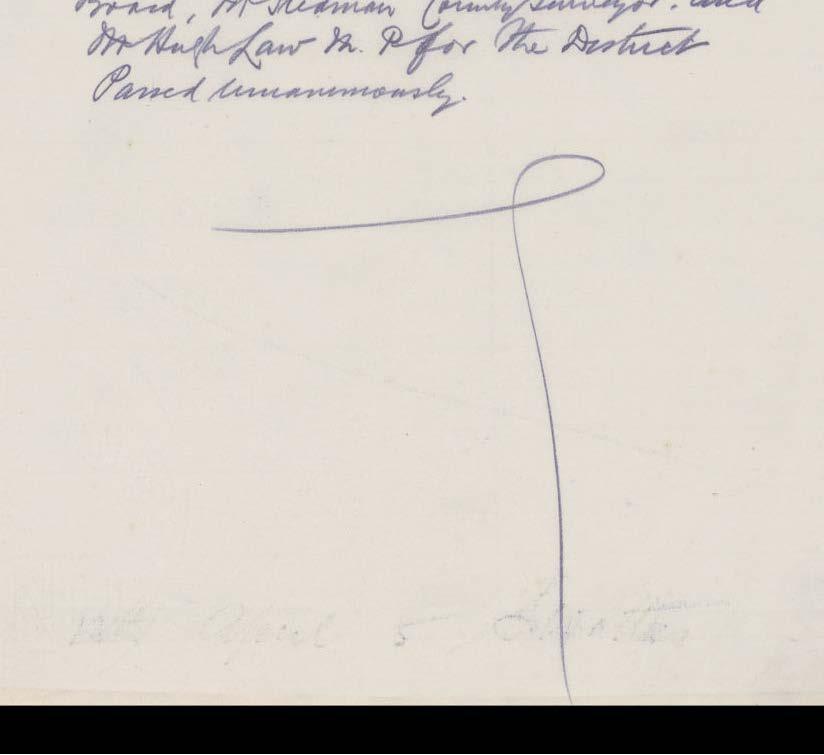 Board, Mr Stedman County Surveyor. and
Mr Hugh Law M. P for the District
Passed unanimously.
April 5